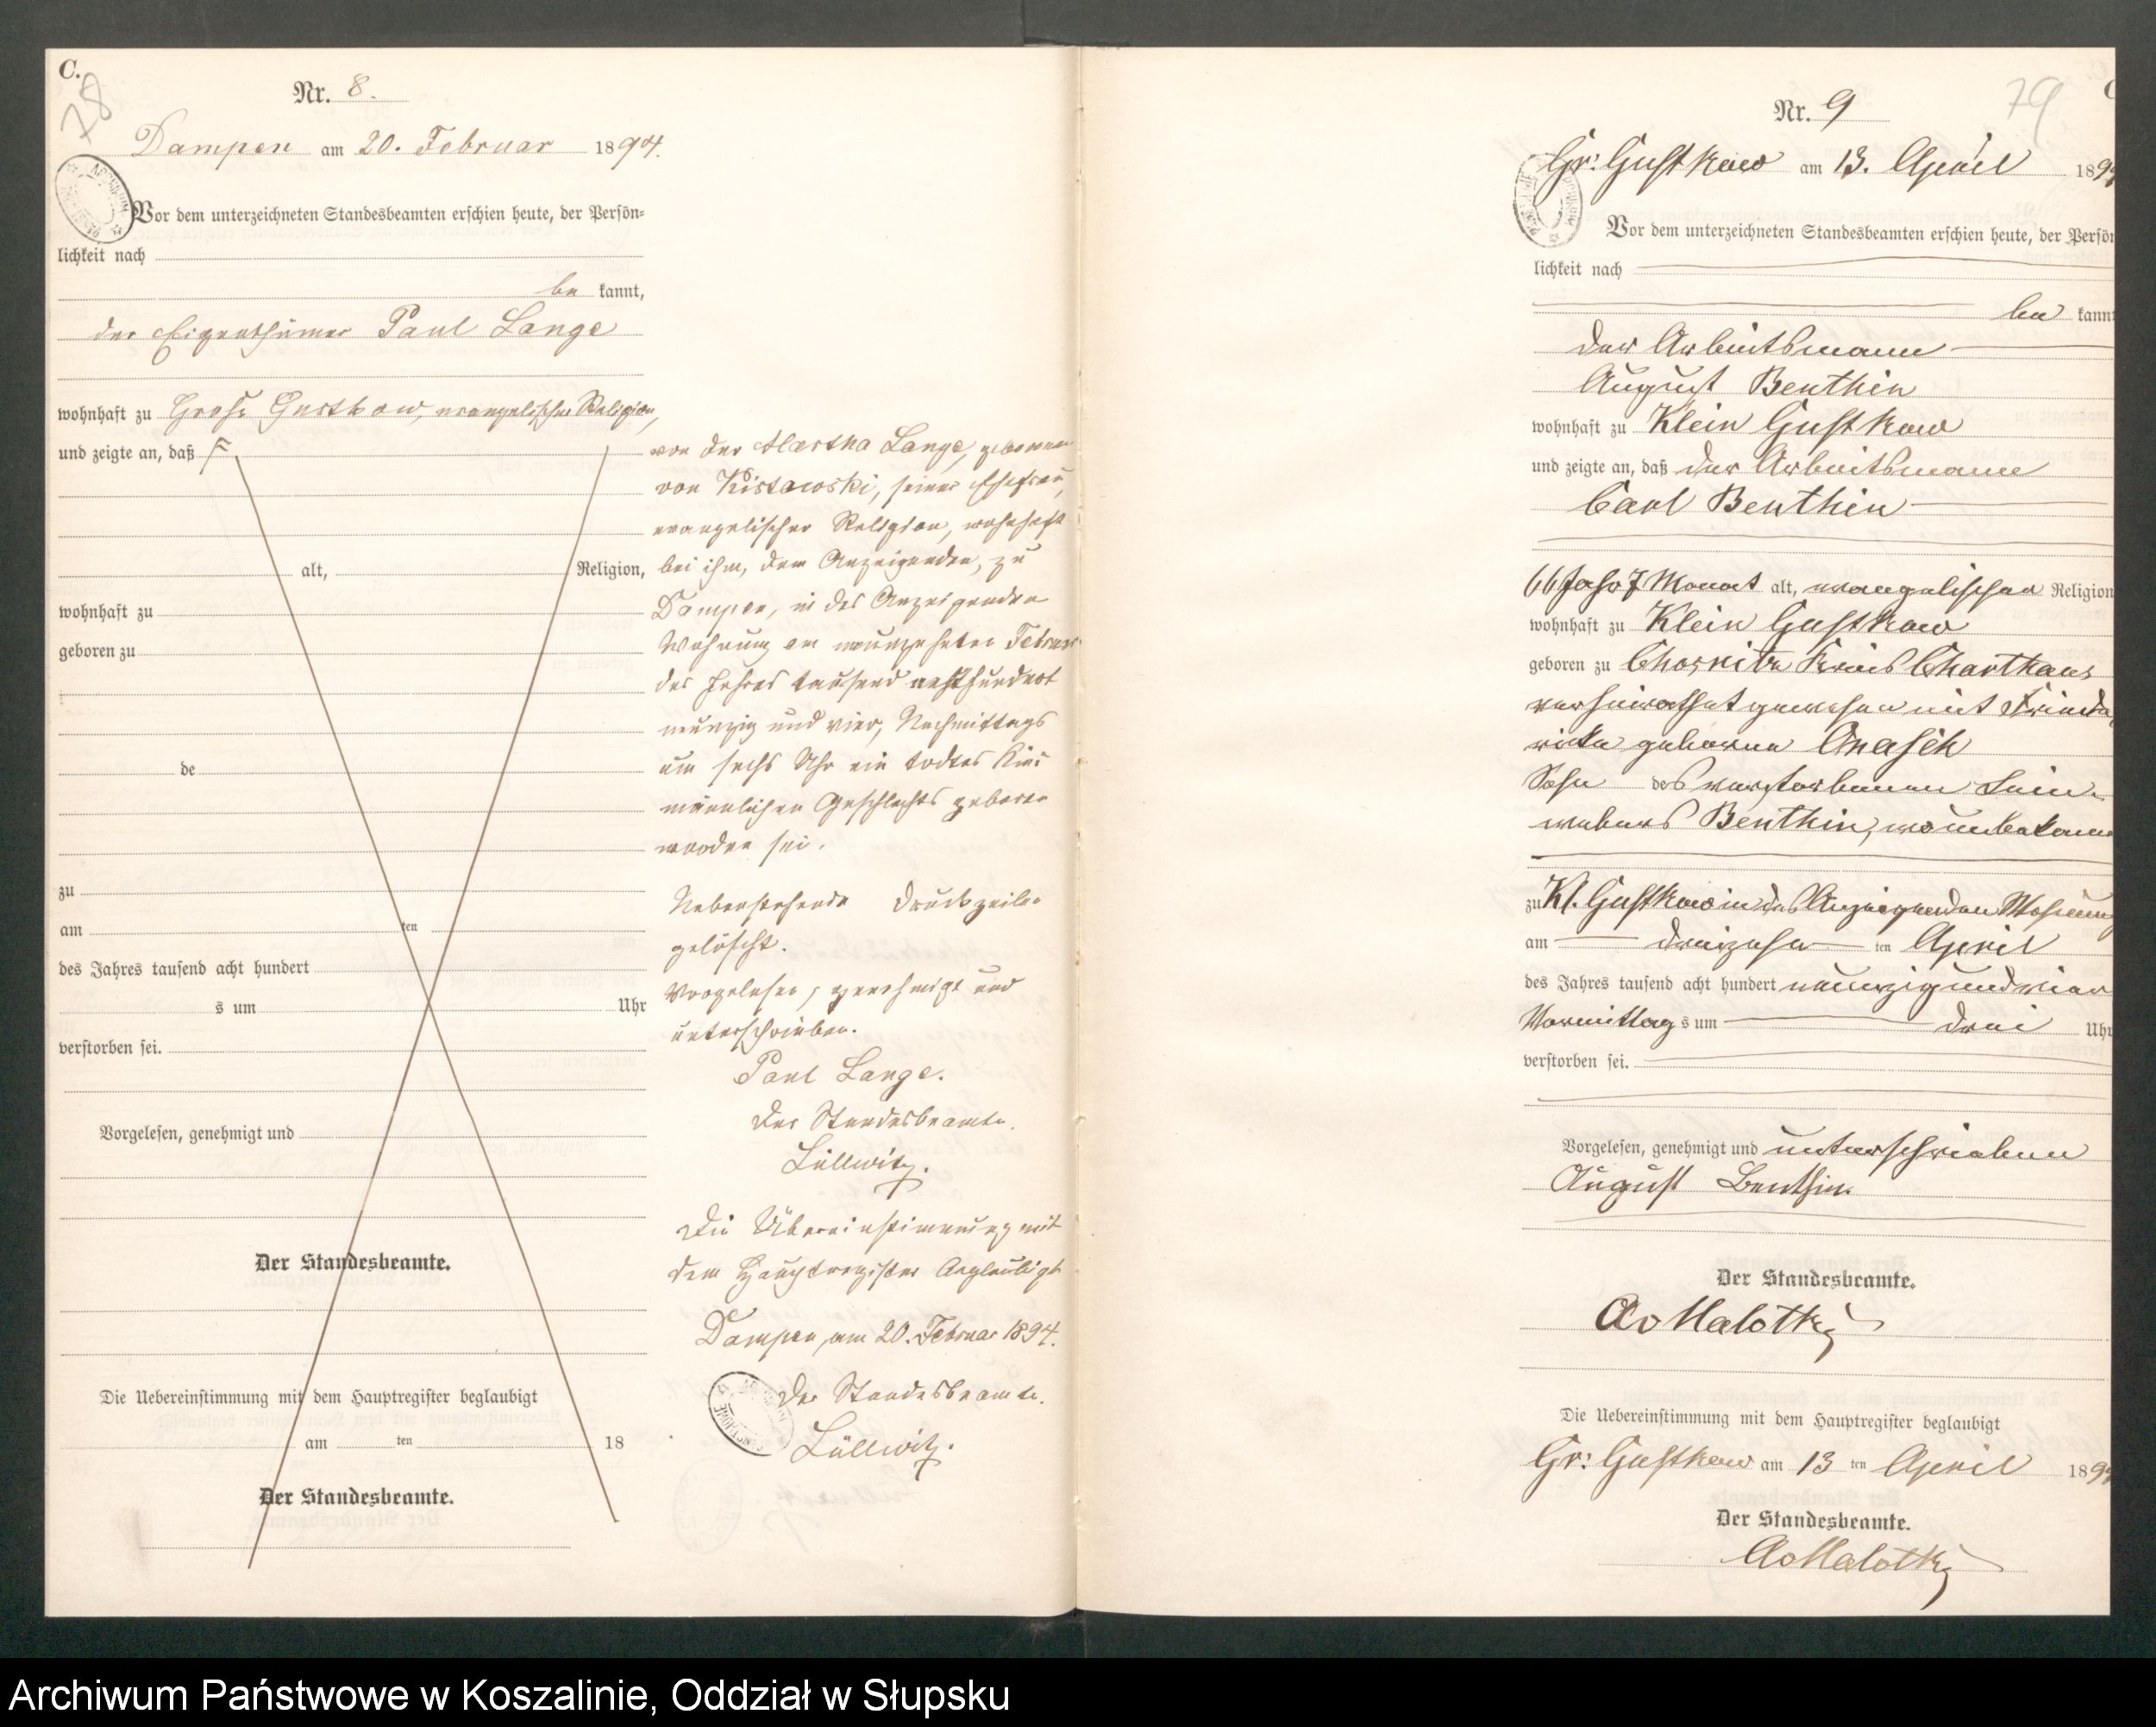 C.
78
Nr. 8.
Dampen am 20. Februar 1894.
Vor dem unterzeichneten Standesbeamten erschien heute, der Persön=
lichkeit nach
be kannt,
der Eigenthümer Paul Lange
wohnhaft zu Groß Gustkow, evangelischer Religion,
und zeigte an, daß
alt, Religion,
wohnhaft zu
geboren zu
de
zu
am ten
des Jahres tausend acht hundert
s um Uhr
verstorben sei.
Vorgelesen, genehmigt und
Der Standesbeamte.
Die Uebereinstimmung mit dem Hauptregister beglaubigt
am ten 18
Der Standesbeamte.
von der Martha Lange, geborenen
von Kistowski, seiner Ehefrau,
evangelischer Religion, wohnhaft
bei ihm, dem Anzeigenden, zu
Dampen, in des Anzeigenden
Wohnung am neunzehnten Februar
des Jahres tausend achthundert
neunzig und vier, Nachmittags
um sechs Uhr ein todtes Kind
männlichen Geschlechts geboren
worden sei.
Nebenstehende Druckzeilen
gelöscht.
Vorgelesen, genehmigt und
unterschrieben.
Paul Lange.
Der Standesbeamte.
Lüllwitz.
Die Übereinstimmung mit
dem Hauptregister beglaubigt
Dampen, am 20. Februar 1894.
Der Standesbeamte.
Lüllwitz.
79
Nr. 9
Gr: Gustkow am 13. April 189
Vor dem unterzeichneten Standesbeamten erschien heute, der Persön
lichkeit nach
be kannt
der Arbeitsmann
August Benthin
wohnhaft zu Klein Gustkow
und zeigte an, daß der Arbeitsmann
Carl Benthin
66 Jahr 7 Monat alt, evangelischer Religion
wohnhaft zu Klein Gustkow
geboren zu Kreis Charthaus
verheirathet gewesen mit Friede
ricke geborne
Sohn des verstorbenen Lein-
webers Benthin, wo unbekannt
zu Kl. Gustkow in des Anzeigenden Wohnung
am dreizehn ten April
des Jahres tausend acht hundert neunzig und vier
Vormittag s um drei Uhr
verstorben sei.
Vorgelesen, genehmigt und unterschrieben
August Benthin
Der Standesbeamte.
AvMalottky
Die Uebereinstimmung mit dem Hauptregister beglaubigt
Gr: Gustkow am 13 ten April 189
Der Standesbeamte.
AvMalottky
Archiwum Państwowe w Koszalinie, Oddział w Słupsku